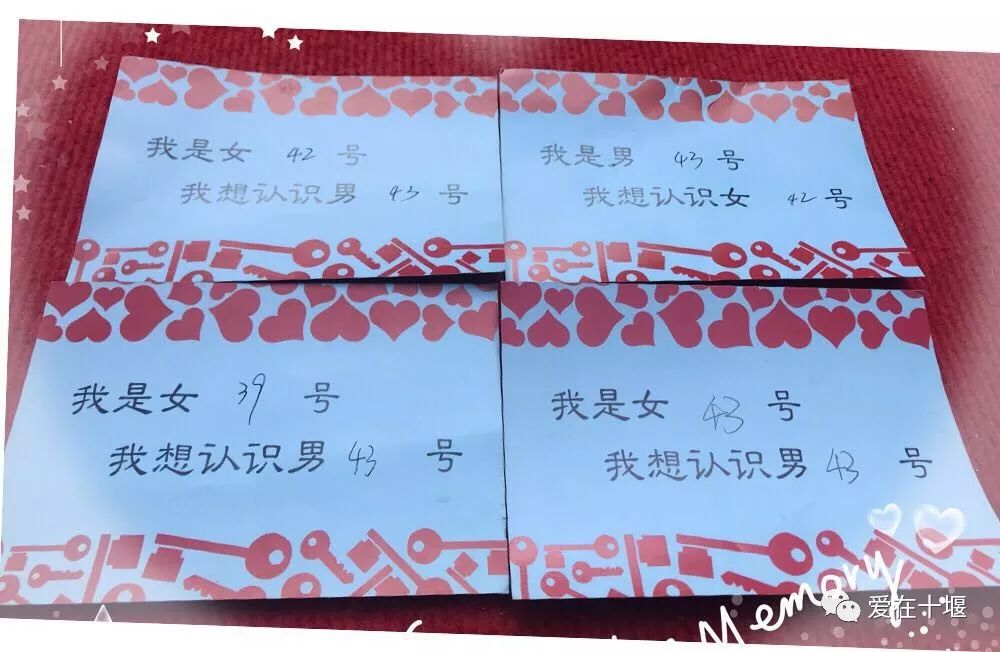 我是女 42 号
我想认识男 43 号
我是男 43 号
我想认识女 42 号
我是女 39 号
我想认识男 43 号
我是女 43 号
我想认识男 43 号
Memory
爱在十堰